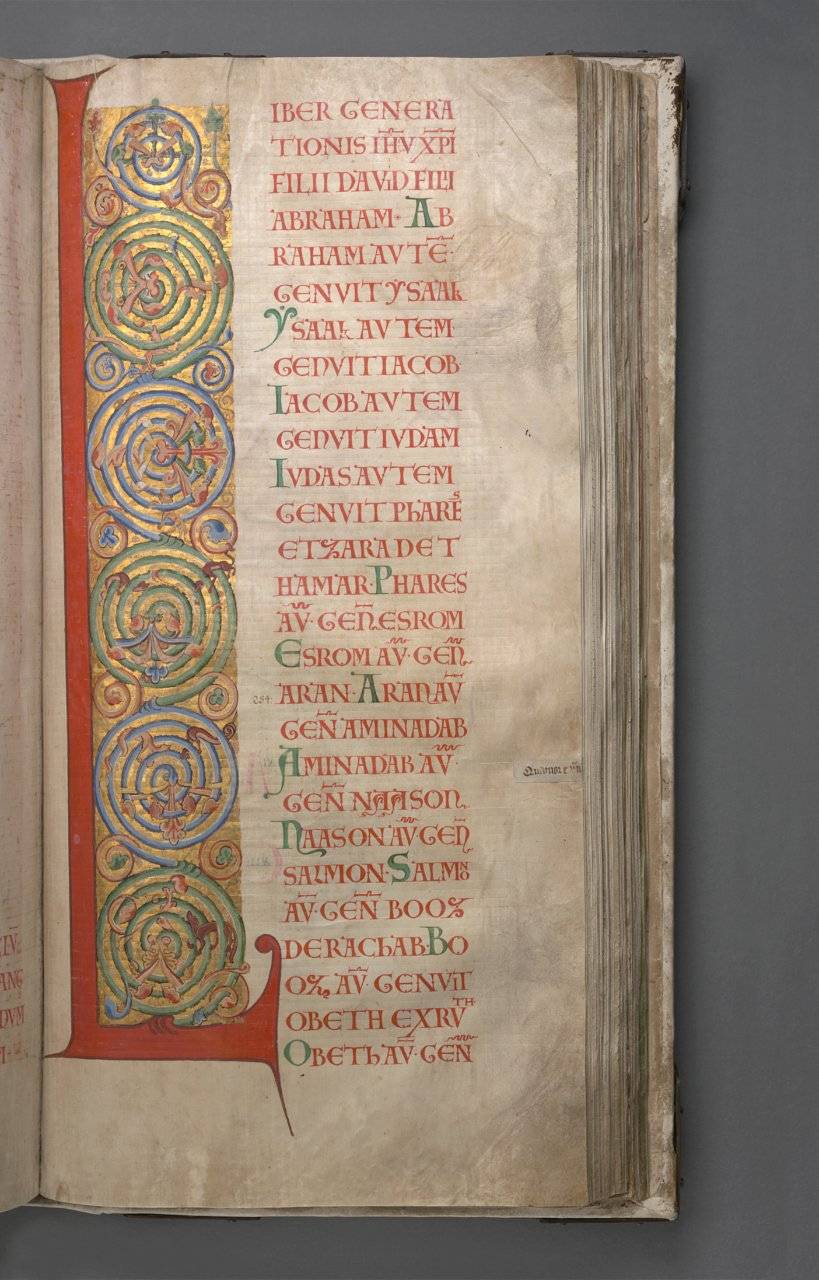 LIBER GENERA
TIONIS IH̅V XP̅I
FILII DAViD FILII
ABRAHAM· AB
RAHAM AVTE̅·
GENVIT YSAAk
YSAAk AVTEM
GENVIT IACOB
IACOB AVTEM
GENVIT IVDAM
IVDAS AVTEM
GENVIT PhARE̅S
ET ZARA DE T
HAMAR· PHARES
AV̅· GEN̅ ESROM
ESROM AV̅· GEN̅
254·
ARAN· ARAN AV̅
GEN̅ AMINADAB
AMINADAB AV̅·
GEN̅ NAASON
NAASON AV̅ GEN̅
SALMON· SALMON
AV̅· GEN̅ BOOZ
DE RAChAB· BO
OZ AV̅· GENViT
OBETH EX RVTH
OBETh AV̅· GEN̅